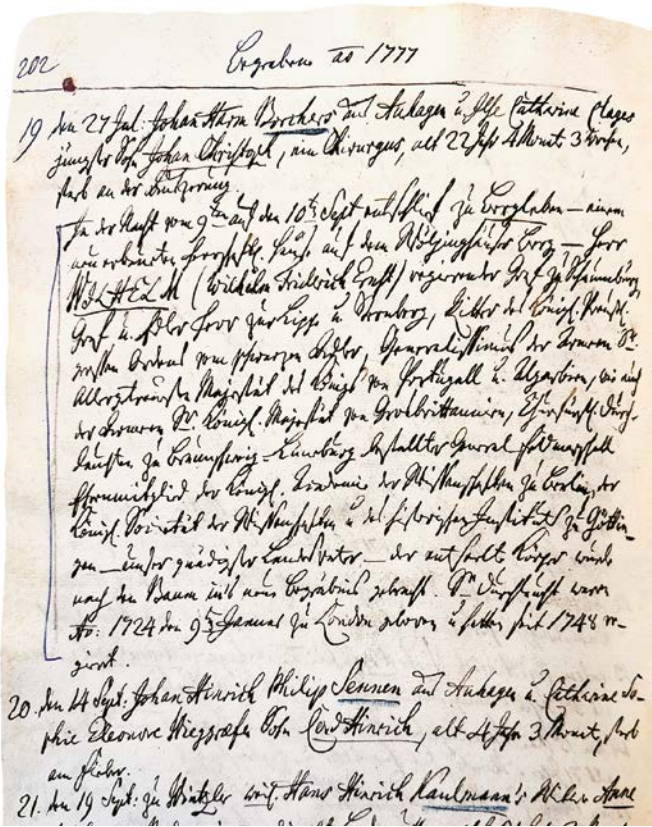 202 Begraben ao 1777
19 den 27 Jul. Johan Harm Borchers aus Auhagen u Ilse Catherine Clages
jüngster Sohn Johan Christoph, ein Chirurgus, alt 22 Jahr 4 Monate 3 Wochen,
starb an der
In der Nacht vom 9ten auf den 10ten Sept entschlief zu Bergleben – einem
neu erbauten herrschaftl. Hause auf dem Wölpinghäuser Berg – Herr
WILHELM (Wilhelm Friedrich Ernst) regierender Graf zu Schaumburg
Graf u. Edler Herr zur Lippe u Sternberg, Ritter des Königl. Preußl.
großen Ordens vom schwarzen Adler, Generalissimus der Armeen Sr.
Allergetreusten Majestät des Königs von Portugall u. Algarbien, wie auch
der Armeen Sr. Königl. Majestät von Grosbrittannien, Churfürstl. Durch-
lauchten zu Braunschweig-Lüneburg bestallter General Feldmarschall
Ehrenmitglied der Königl. Academie der Wissenschaften zu Berlin, der
Königl. Societät der Wissenschaften u des historischen Instituts zu Göttin-
gen – unser gnädigster Landesvater – der entseelte Körper wurde
nach dem Baum ins neue Begräbnis gebracht. Sr Durchlaucht waren
Ao: 1724 den 9 Januar zu London geboren u hatten seit 1748 re-
giert.
20. den 14 Sept: Johan Hinrich Philip Sennen aus Auhagen u. Catherine So-
phie Eleonore Wieggräfen Sohn Cord Hinrich, alt 4 Jahr 3 Monat, starb
am Fieber.
21. den 19 Sept: zu Wintzler weil. Hans Hinrich Kaulmann's Witwe Anne